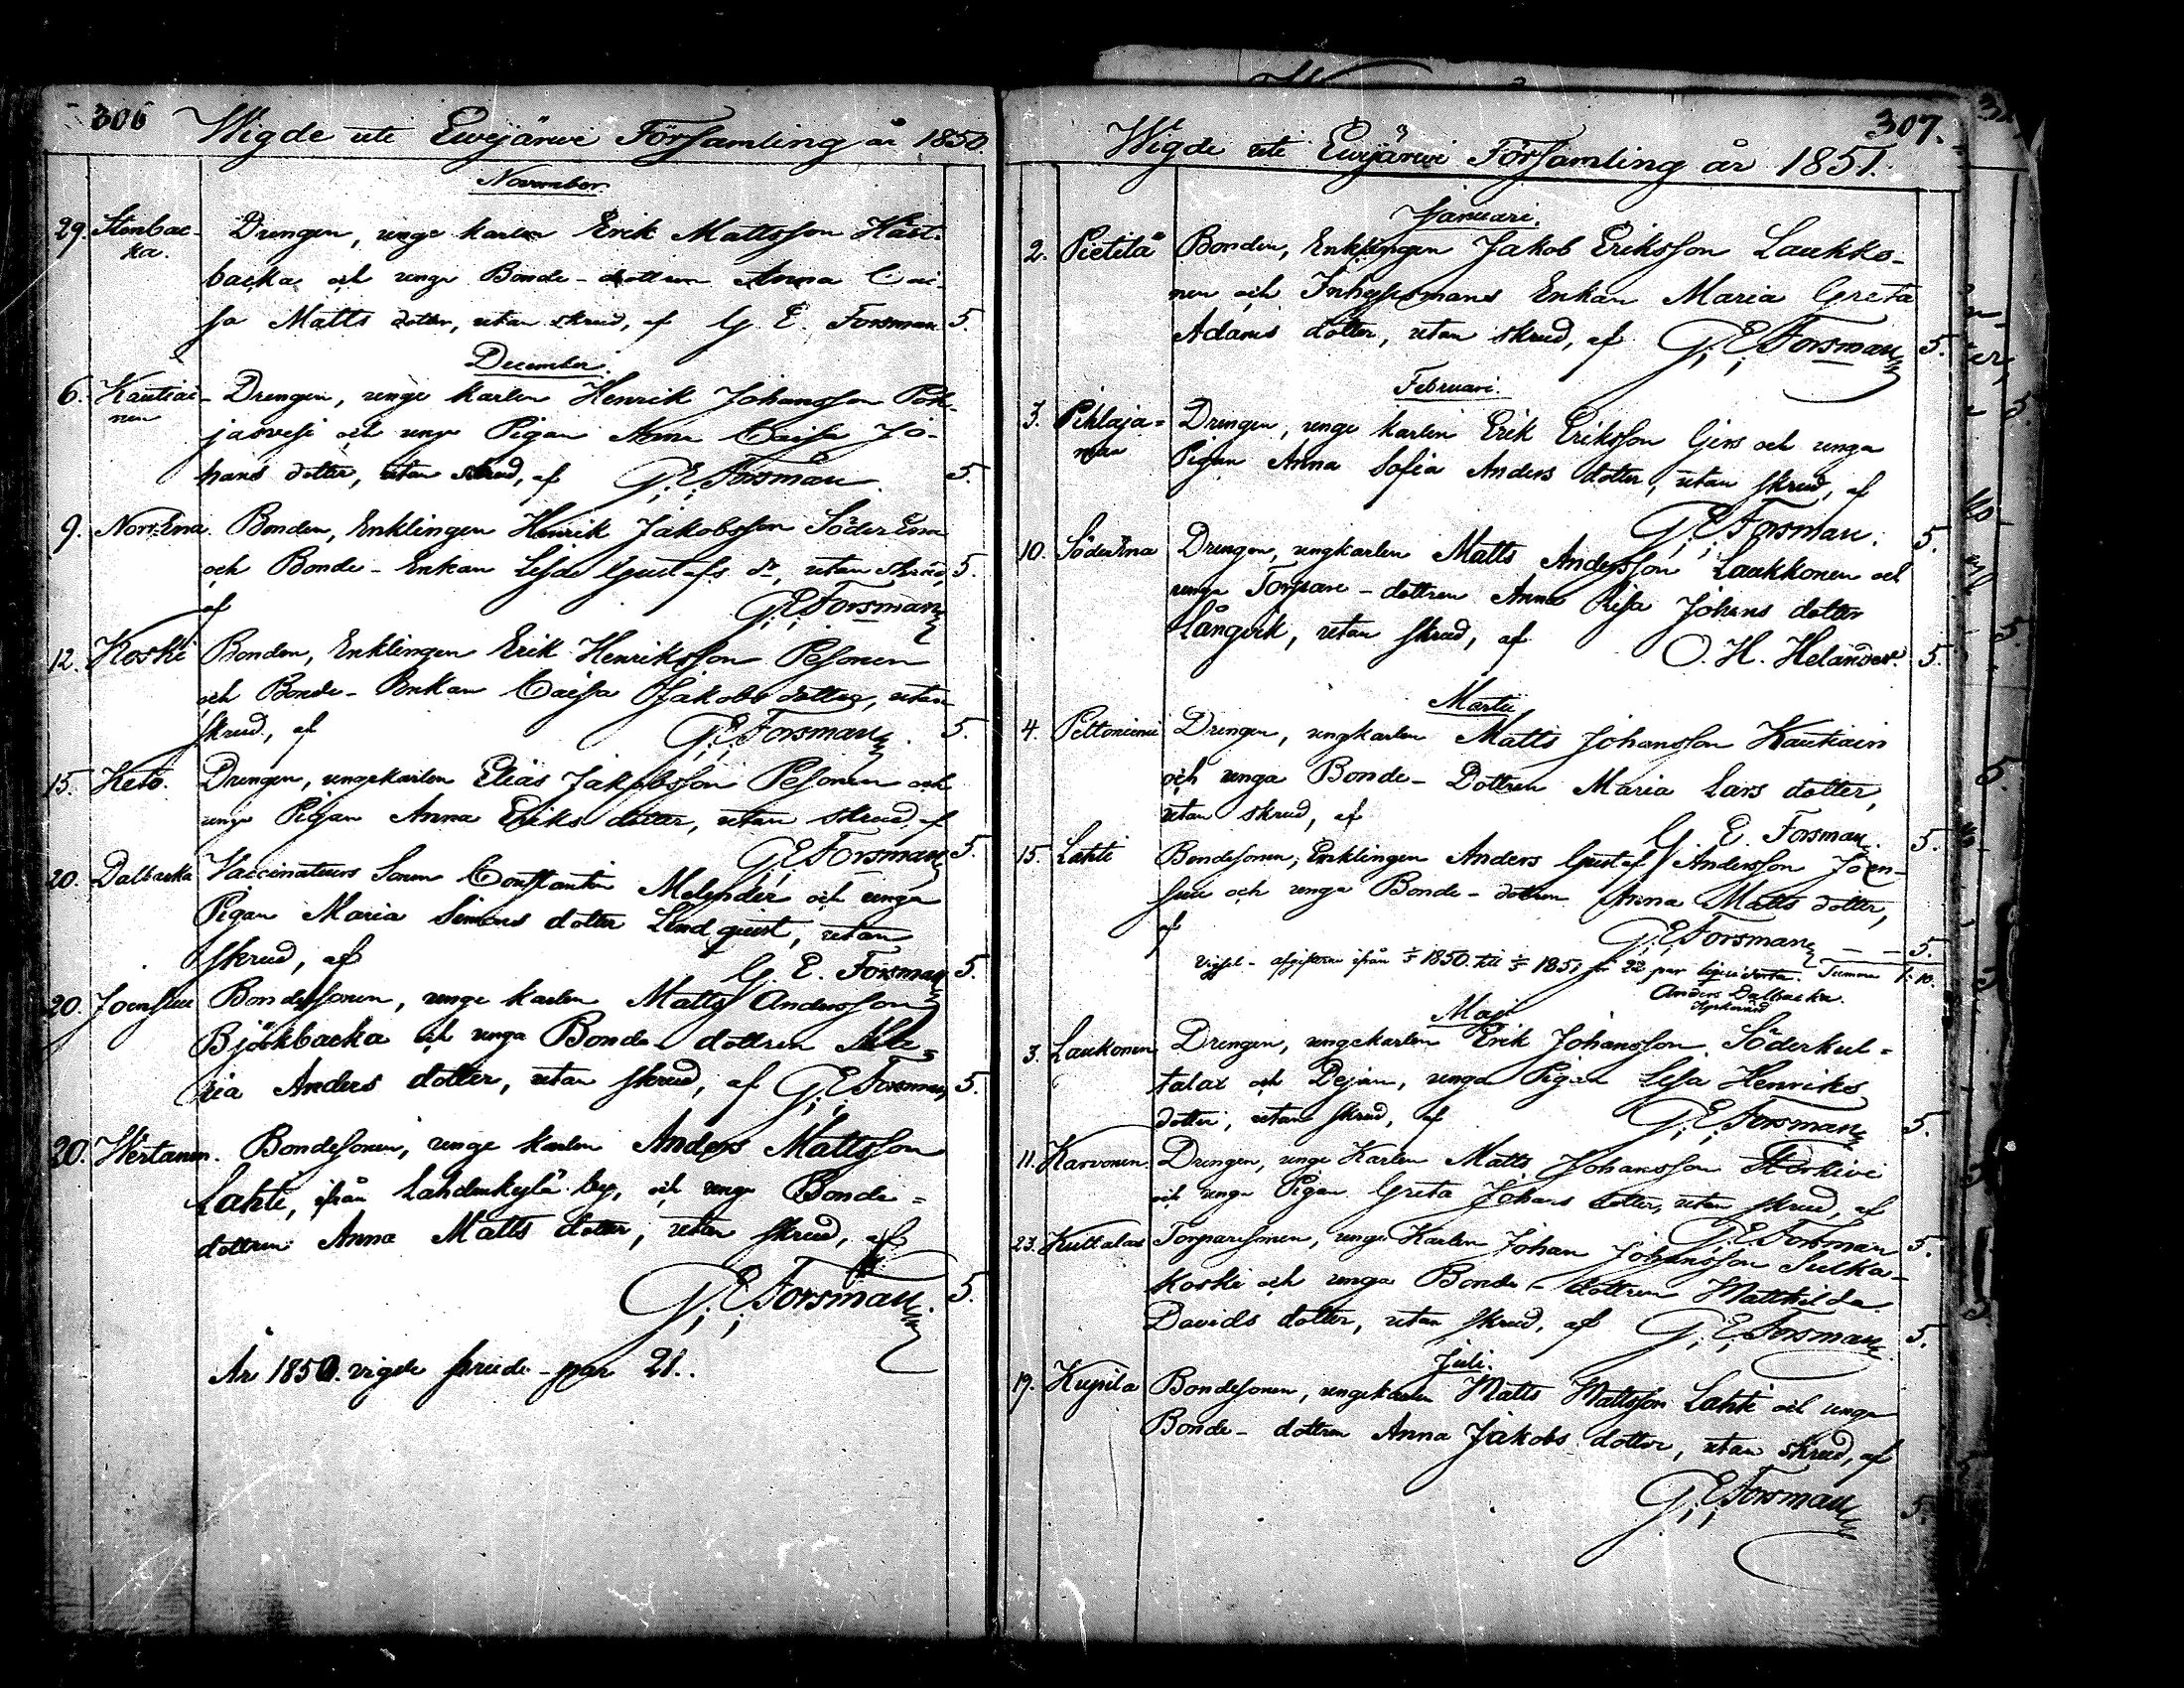 306
Wigde uti Ewijärwi Församling år 1850.
November.
29. Stenbac-
ka.
Drengen, unge karlen Erik Mattsson Häst-
backa och unga Bonde-dottren Anna Cai-
sa Matts dotter, utan skrud, af G. E. Forsman 5.
December.
6. Kautiai-
nen
Drengen, unge karlen Henrik Johansson Poh-
jaswesi och unga Pigan Anna Caisa Jo-
hans dotter, utan skrud, af G. E. Forsman. 5.
9. Norr-Ena. Bonden, Enklingen Henrik Jakobsson SöderEna
och Bonde-Enkan Lisa Gustafs dr, utan skrud, 5.
af G. E. Forsman
12. Koski Bonden, Enklingen Erik Henriksson Pesonen
och Bonde-Enkan Caisa Jakobs dotter, utan
skrud, af G. E. Forsman. 5.
15. Keto. Drengen, ungekarlen Elias Jakobsson Pesonen och
unga Pigan Anna Eriks dotter, utan skrud, af
G. E. Forsman 5.
20. Dalbacka Vaccinateurs Sonen Constantin Melender och unga
Pigan Maria Simons dotter Lindquist, utan
skrud, af G. E. Forsman 5.
20. Joensuu Bondesonen, unge karlen Matts Andersson
Björkbacka och unga Bonde-dottren Ma-
ria Anders dotter, utan skrud, af G. E. Forsman 5.
20. Wertanen. Bondesonen, unge karlen Anders Mattsson
Lahti, ifrån Lahdenkylä by, och unga Bonde-
dottren Anna Matts dotter, utan skrud, af
G. E. Forsman. 5.
År 1850. vigde brude-par 21.
307.
Wigde uti Ewijärwi Församling år 1851.
Januari.
2. Pietilä Bonden, Enklingen Jakob Eriksson Laukko-
nen och Inhysesmans Enkan Maria Greta
Adams dotter, utan skrud, af G. E. Forsman 5.
Februari.
3. Pihlaja-
maa
Drengen, unge karlen Erik Eriksson Gers och unga
Pigan Anna Sofia Anders dotter, utan skrud, af
G. E. Forsman. 5.
10. SöderEna Drengen, ungkarlen Matts Andersson Laukkonen och
unga Torpare-dottren Anna Lisa Johans dotter
Långvik, utan skrud, af O. H. Helander. 5.
Martii
4. Peltoniemi Drengen, ungkarlen Matts Johansson Kautiain
och unga Bonde-Dottren Maria Lars dotter,
utan skrud, af G. E. Forsman. 5.
15. Lahti Bondesonen, Enklingen Anders Gustaf Andersson Joen-
suu och unga Bonde-dottren Anna Matts dotter,
af G. E. Forsman — — 5.
Vigsel-afgifterne ifrån 1850. till 1851 för 22 par liqviderta. Summa 1: 10.
Anders Dalbacka.
Kyrkovärd
Maji
3. Laukonen Drengen, ungekarlen Erik Johansson Söderkul-
talax och Pejan, unga Pigan Lisa Henriks
dotter, utan skrud, af G. E. Forsman 5.
11. Karvonen. Drengen, unge Karlen Matts Johansson Storkivi
och unga Pigan Greta Johans dotter, utan skrud, af
G. E. Forsman 5.
23. Kultalax Torparesonen, unge Karlen Johan Johansson Sulka-
koski och unga Bonde-dottren Matthilda
Davids dotter, utan skrud, af G. E. Forsman 5.
Juli.
19. Kujula Bondesonen, ungekarlen Matts Mattsson Lahti och unga
Bonde-dottren Anna Jakobs dotter, utan skrud, af
G. E. Forsman 5.